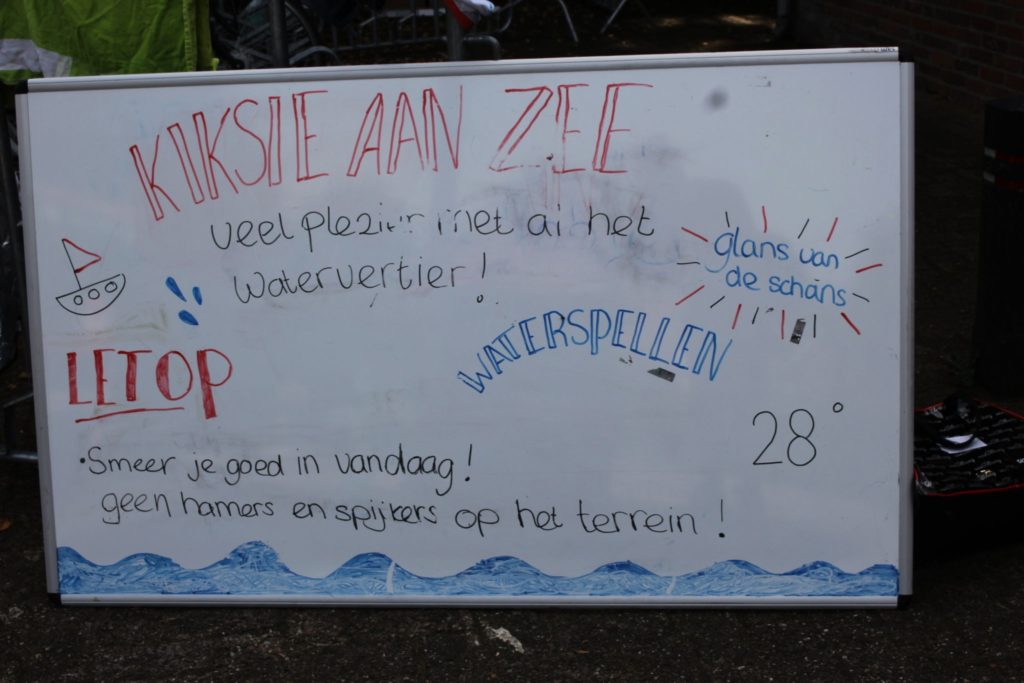 KIKSIE AAN ZEE
veel plezier met al het
watervertier!
glans van
de schans
WATERSPELLEN
LET OP
28°
• Smeer je goed in vandaag!
geen hamers en spijkers op het terrein!